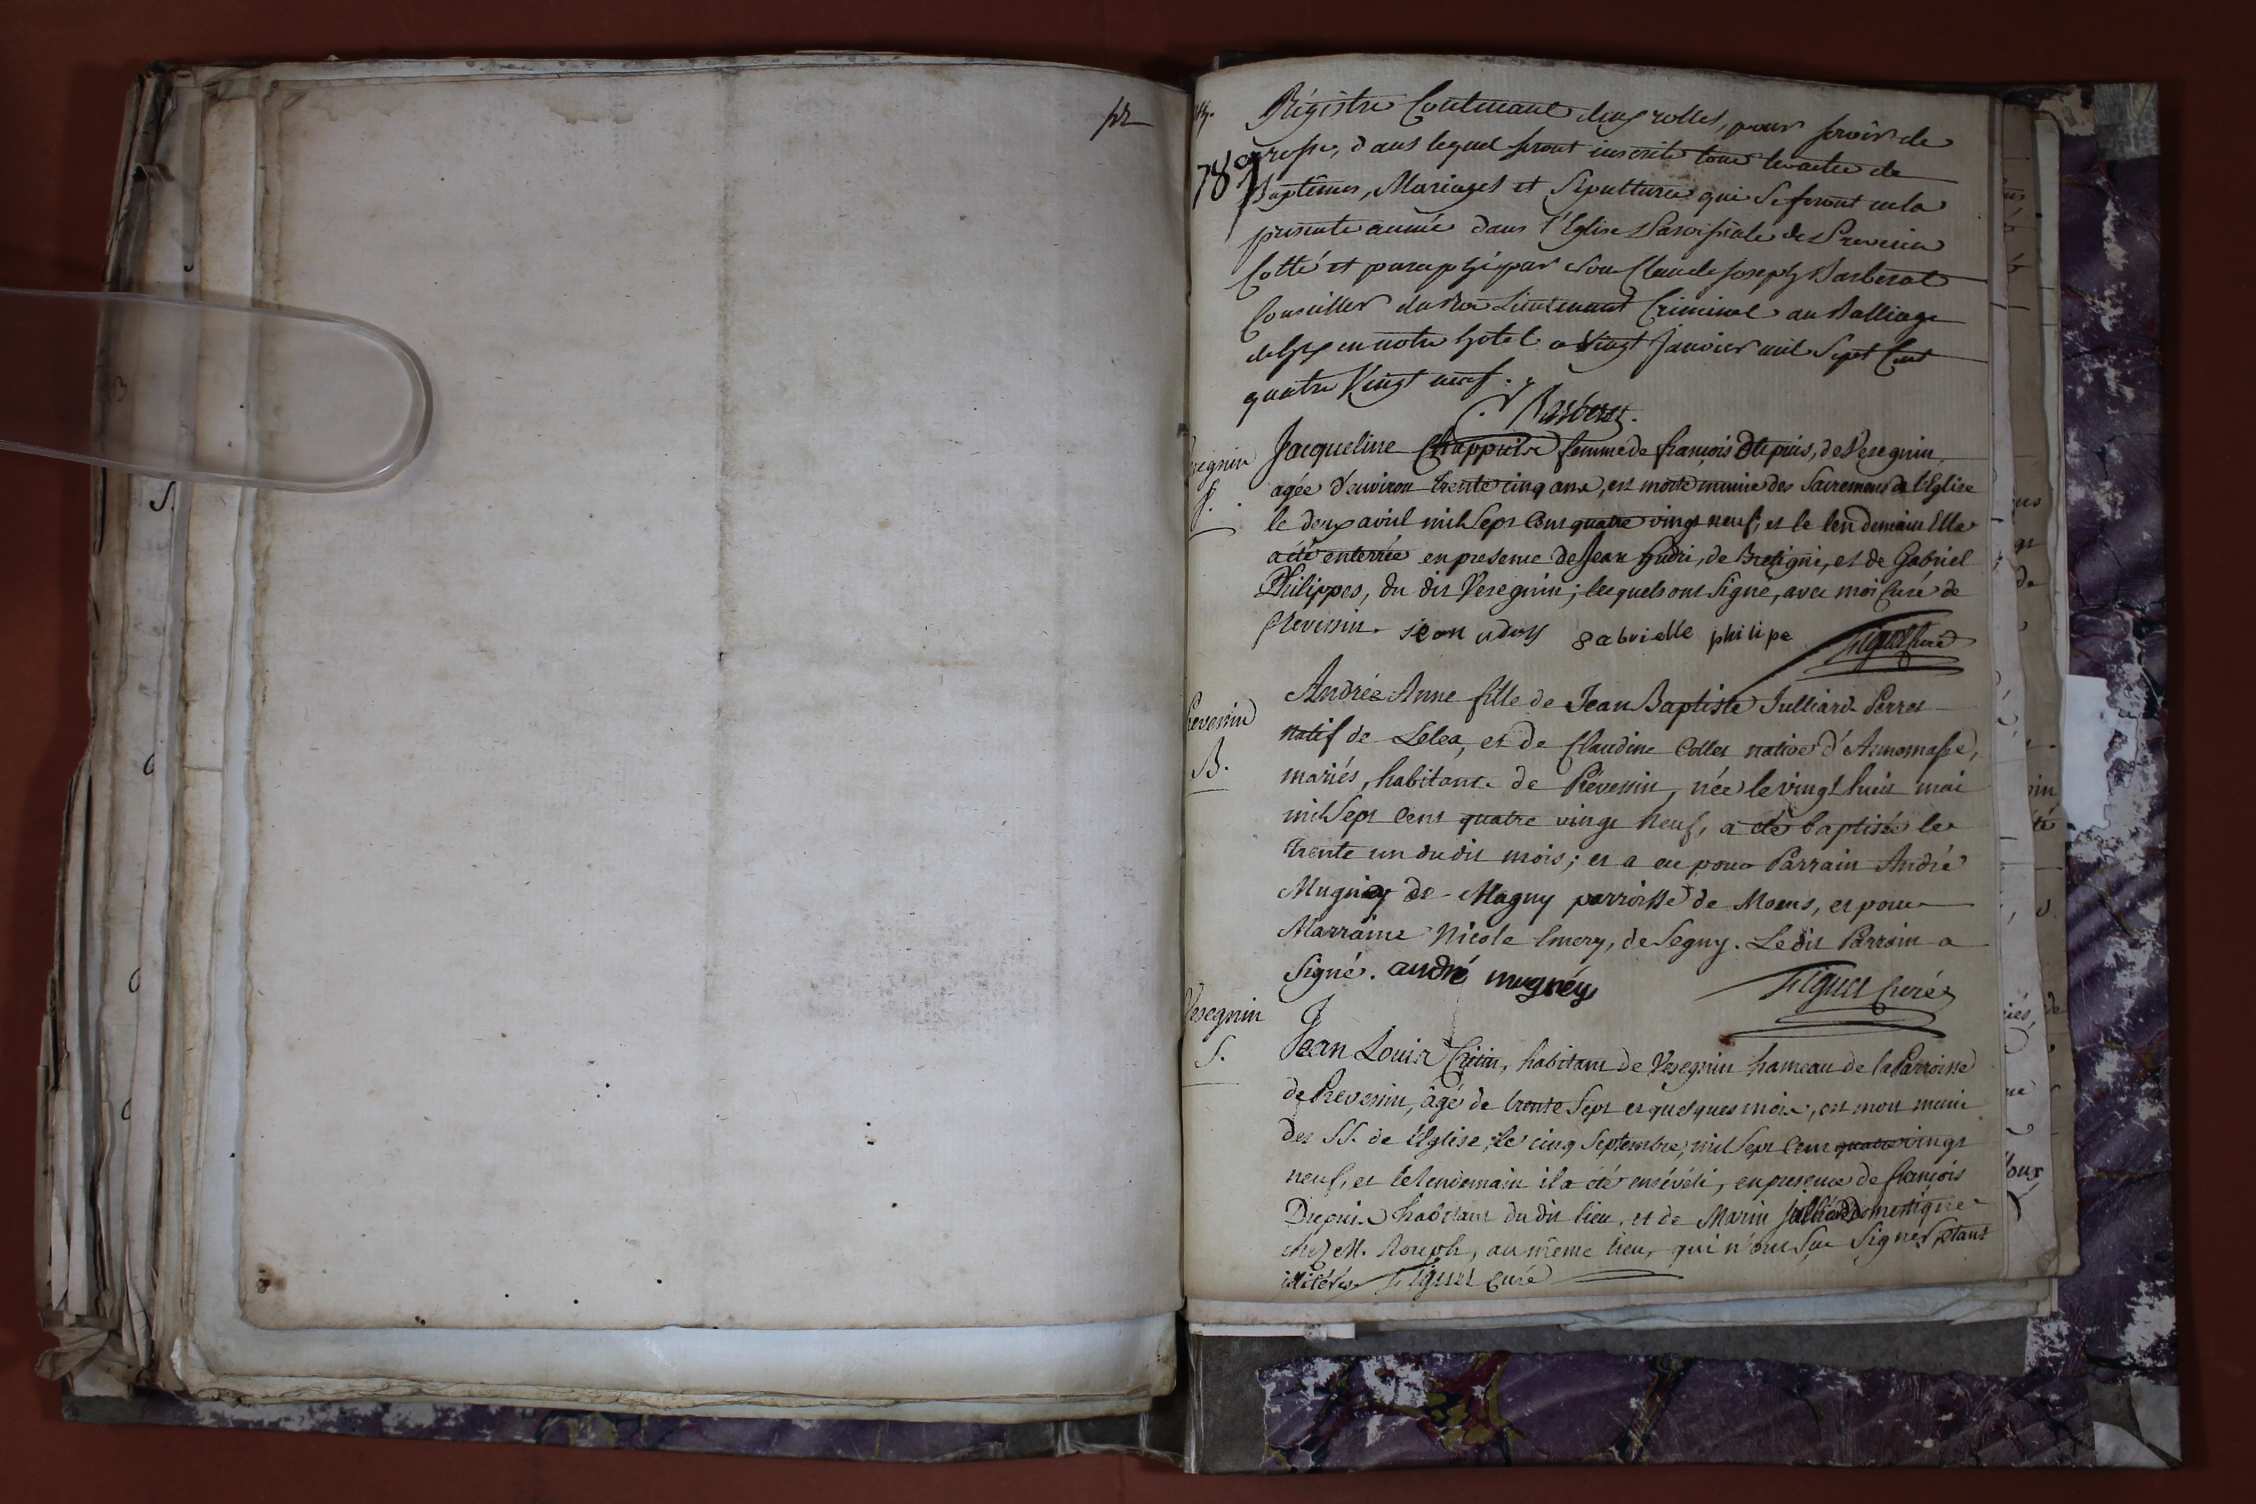 1789
Régistre Contenant deux rolles, pour servir de
grosse, dans lequel seront inscrits tous les actes de
Baptêmes, Mariages et Sépultures qui se feront en la
présente année dans l'Eglise Paroissiale de Prevessin
Cotté et paraphé par Nous Claude Joseph Barberat
Conseiller du Roi Lieutenant Criminel au Balliage
de Gex en notre hotel ce Vingt Janvier mil Sept Cent
quatre Vingt neuf.
Barberat.
Jacqueline Chappuise femme de françois Depuis, de Vesegnin,
S.
agée d'environ trente cinq ans, est morte munie des Sacremens de l'Eglise
le deux avril mil Sept Cent quatre vingt neuf, et le lendemain Elle
a été enterrée en presence de Jean hudri, de Bretigni, et de Gabriel
Philippes, du dit Vesegnin; lesquels ont Signé, avec moi Curé de
Prevessin. jean udry gabrielle philipe curé
Andréz Anne fille de Jean Baptiste Julliard Perret
Prevessin
natif de Lelea, et de Claudine Collet native d'Annemasse,
B.
mariés, habitans de Prévessin, née le vingt huit mai
mil Sept Cent quatre vingt neuf, a été baptisée le
trente un du dit mois; et a eu pour Parrain André
Mugniey de Magny parroisse de Moens, et pour
Marraine Nicole Emery, de Segny. Le dit Parrain a
Signé. andré mugnéy curé
Vesegnin
S.
Jean Louis habitant de Vesegnin hameau de la Parroisse
de Prevessin, âgé de trente Sept et quelques mois, est mort muni
des SS. de l'Eglise, le cinq Septembre, mil Sept Cent quatre vingt
neuf, et le lendemain il a été enséveli, en presence de françois
Depuis habitant du dit lieu, et de Marin Julliard domestique
chez M. au même lieu, qui n'ont Su Signer Etant
illitérés curé